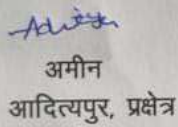 अमीन
आदित्यपुर, प्रक्षेत्र